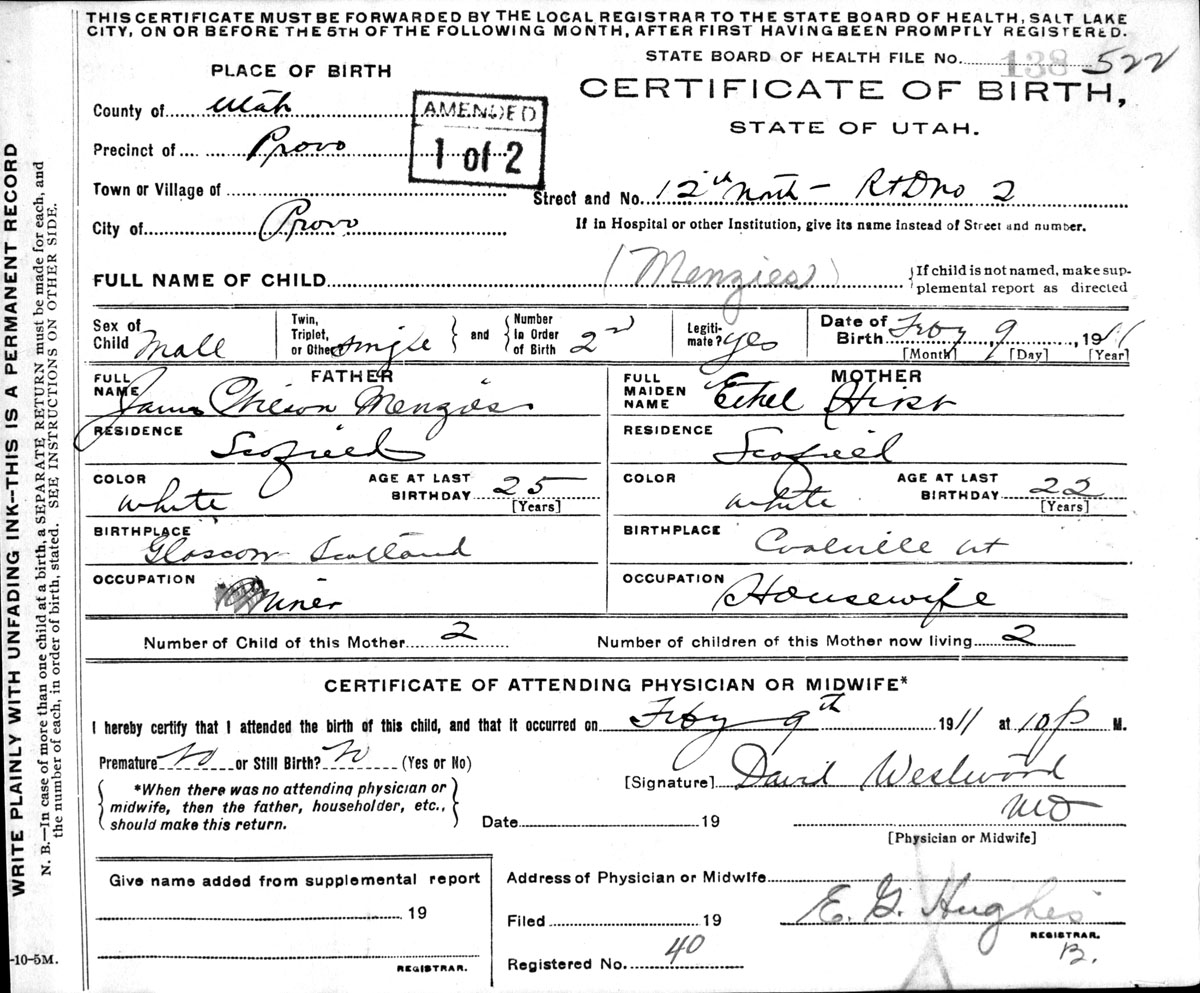 THIS CERTIFICATE MUST BE FORWARDED BY THE LOCAL REGISTRAR TO THE STATE BOARD OF HEALTH, SALT LAKE
CITY, ON OR BEFORE THE 5TH OF THE FOLLOWING MONTH, AFTER FIRST HAVING BEEN PROMPTLY REGISTERED.
STATE BOARD OF HEALTH FILE No. 138 522
PLACE OF BIRTH
CERTIFICATE OF BIRTH,
STATE OF UTAH.
County of Utah
AMENDED
1 of 2
Precinct of Provo
Town or Village of
Street and No. 12th North - RtDno 2
City of Provo
If in Hospital or other Institution, give its name instead of Street and number.
FULL NAME OF CHILD (Menzies)
{If child is not named, make sup-
plemental report as directed
Sex of Child Male
Twin, Triplet, or Other single } and { Number In Order of Birth 2nd
Legiti-mate? yes
Date of Birth Feby 9, 1911
[Month] [Day] [Year]
FATHER
FULL NAME James Wilson Menzies
MOTHER
FULL MAIDEN NAME Ethel Hirst
RESIDENCE Scofield
RESIDENCE Scofield
COLOR white AGE AT LAST BIRTHDAY 25 [Years]
COLOR white AGE AT LAST BIRTHDAY 22 [Years]
BIRTHPLACE Glascow Scotland
BIRTHPLACE Coalville Ut
OCCUPATION Miner
OCCUPATION Housewife
Number of Child of this Mother 2 Number of children of this Mother now living 2
CERTIFICATE OF ATTENDING PHYSICIAN OR MIDWIFE*
I hereby certify that I attended the birth of this child, and that it occurred on Feby 9th 1911 at 10 p M.
Premature No or Still Birth? No (Yes or No)
[Signature] David Westwood
MD
[Physician or Midwife]
{ *When there was no attending physician or
midwife, then the father, householder, etc.,
should make this return. }
Date 19
Give name added from supplemental report
19
REGISTRAR.
Address of Physician or Midwife
Filed 19 E. G. Hughes
REGISTRAR.
B.
Registered No. 40
WRITE PLAINLY WITH UNFADING INK--THIS IS A PERMANENT RECORD
N. B.—In case of more than one child at a birth, a SEPARATE RETURN must be made for each, and
the number of each, in order of birth, stated. SEE INSTRUCTIONS ON OTHER SIDE.
-10-5M.